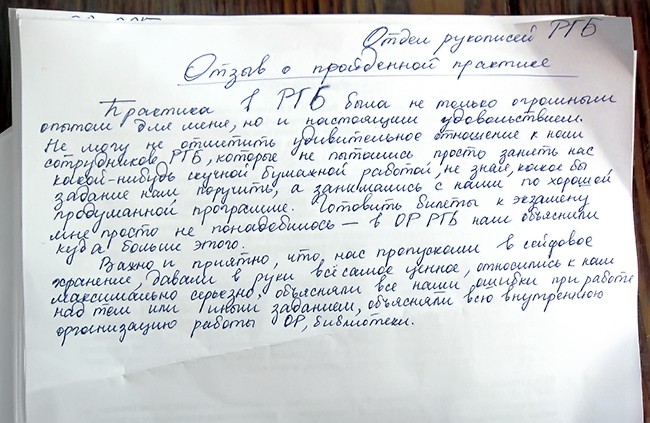 Отдел рукописей РГБ
Отзыв о пройденной практике
Практика в РГБ была не только огромным
опытом для меня, но и настоящим удовольствием.
Не могу не отметить удивительное отношение к нам
сотрудников РГБ, которые не пытались просто занять нас
какой-нибудь скучной бумажной работой, не зная, какое бы
задание нам поручить, а занимались с нами по хорошей
продуманной программе. Готовить билеты к экзамену
мне просто не понадобилось – в ОР РГБ нам объяснили
куда больше этого.
Важно и приятно, что нас пропускали в сейфовое
хранение, давали в руки всё самое ценное, относились к нам
максимально серьезно, объясняли все наши ошибки при работе
над тем или иным заданием, объясняли всю внутреннюю
организацию работы ОР, библиотеки.